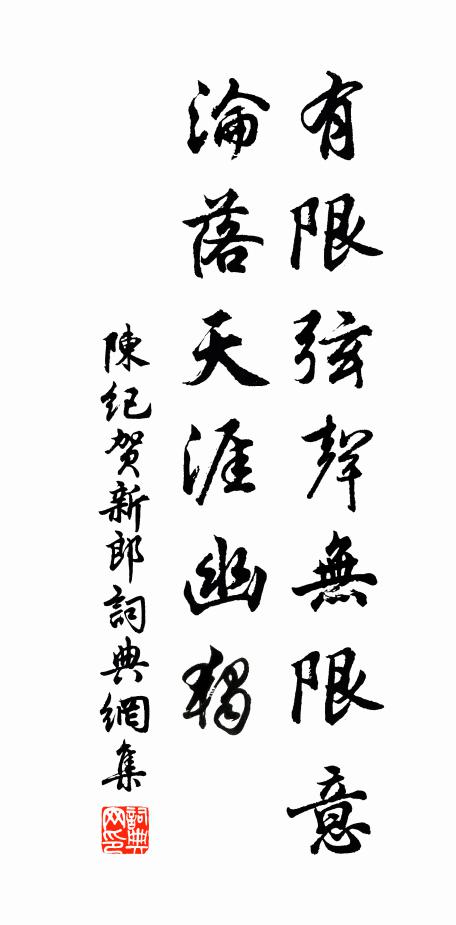 有限弦聲無限意
淪落天涯幽獨
陳紀賀新郎詞典網集
詞典网印